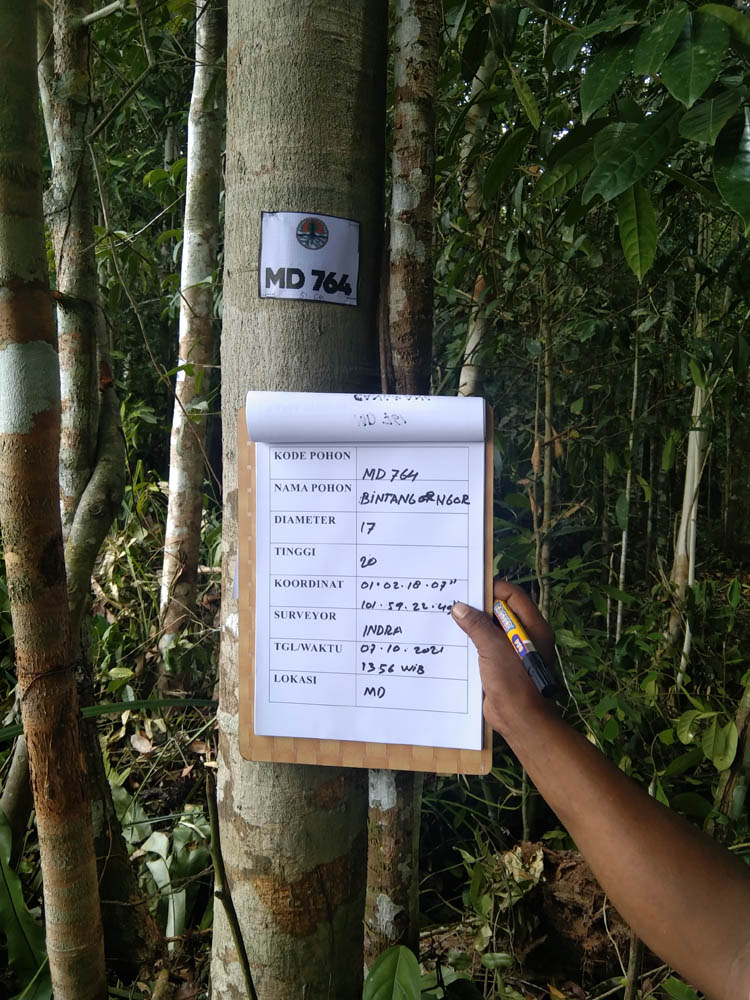 MD 764
KODE POHON MD 764
NAMA POHON BINTANGORNGOR
DIAMETER 17
TINGGI 20
KOORDINAT 01·02·18·07"
101·59·22·42"
SURVEYOR INDRA
TGL/WAKTU 07·10·2021
13 56 WIB
LOKASI MD